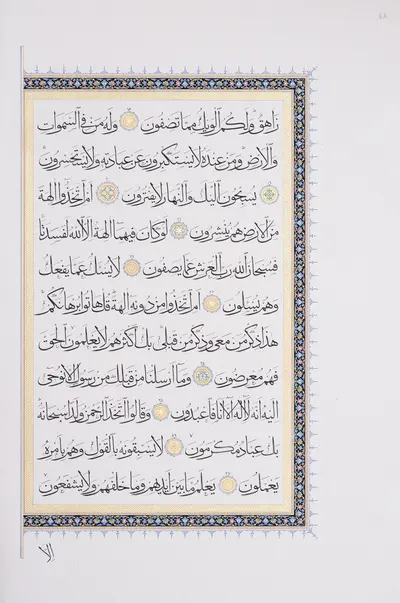 ٤٨
زاهق ولكم الويل مما تصفون وله من في السموات
والارض ومن عنده لا يستكبرون عن عبادته ولا يستحسرون
يسبحون اليل والنهار لا يفترون ام اتخذوا الهة
من الارض هم ينشرون لو كان فيهما الهة الا الله لفسدتا
فسبحان الله رب العرش عما يصفون لا يسئل عما يفعل
وهم يسئلون ام اتخذوا من دونه الهة قل هاتوا برهانكم
هذا ذكر من معي وذكر من قبلي بل اكثرهم لا يعلمون الحق
فهم معرضون وما ارسلنا من قبلك من رسول الا نوحي
اليه انه لا اله الا انا فاعبدون وقالوا اتخذ الرحمن ولدا سبحانه
بل عباد مكرمون لا يسبقونه بالقول وهم بامره
يعملون يعلم ما بين ايديهم وما خلفهم ولا يشفعون
الا